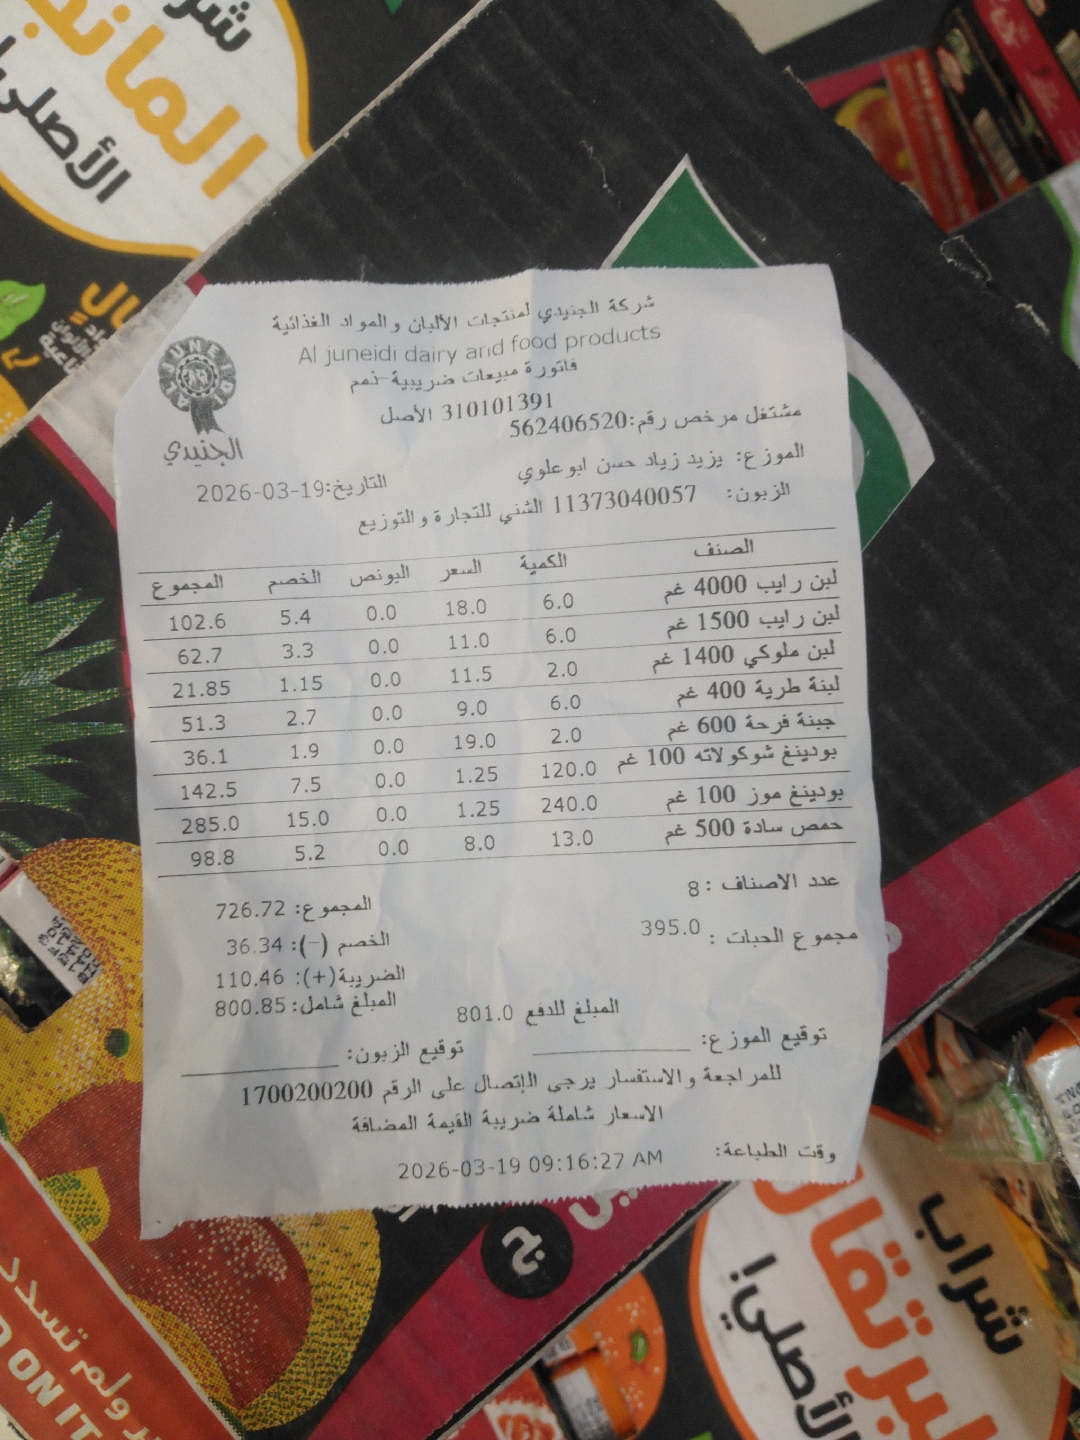 شراب
المانجو
الأصلي!
شركة الجنيدي لمنتجات الألبان والمواد الغذائية
Al juneidi dairy and food products
فاتورة مبيعات ضريبية-ذمم
310101391 الأصل
مشتغل مرخص رقم:562406520
AL JUNEIDI
الجنيدي
الموزع: يزيد زياد حسن ابو علوي
التاريخ:2026-03-19
الزبون: 11373040057 الشني للتجارة والتوزيع
الصنف الكمية السعر البونص الخصم المجموع
لبن رايب 4000 غم 6.0 18.0 0.0 5.4 102.6
لبن رايب 1500 غم 6.0 11.0 0.0 3.3 62.7
لبن ملوكي 1400 غم 2.0 11.5 0.0 1.15 21.85
لبنة طرية 400 غم 6.0 9.0 0.0 2.7 51.3
جبنة فرحة 600 غم 2.0 19.0 0.0 1.9 36.1
بودينغ شوكولاته 100 غم 120.0 1.25 0.0 7.5 142.5
بودينغ موز 100 غم 240.0 1.25 0.0 15.0 285.0
حمص سادة 500 غم 13.0 8.0 0.0 5.2 98.8
عدد الاصناف : 8
المجموع: 726.72
مجموع الحبات : 395.0
الخصم (-): 36.34
الضريبة(+): 110.46
المبلغ شامل: 800.85
المبلغ للدفع 801.0
توقيع الموزع:
توقيع الزبون:
للمراجعة والاستفسار يرجى الإتصال على الرقم 1700200200
الاسعار شاملة ضريبة القيمة المضافة
وقت الطباعة: 2026-03-19 09:16:27 AM
شراب
البرتقال
الأصلي!
ولم تسدد
ON IT